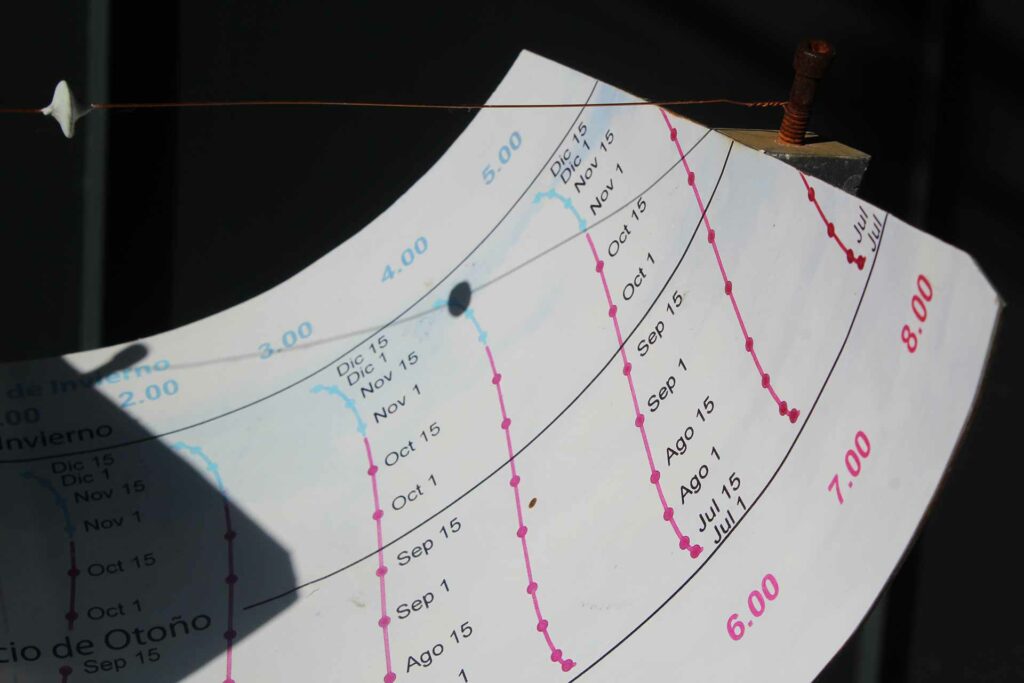 5.00
Dic 15
Dic 1
Nov 15
Nov 1
Oct 15
Oct 1
Sep 15
Sep 1
Ago 15
Ago 1
Jul 15
Jul 1
Jul
Jul
8.00
7.00
6.00
4.00
3.00
Dic 15
Dic 1
Nov 15
Nov 1
Oct 15
Oct 1
Sep 15
Sep 1
Ago 15
1
de Invierno
2.00
.00
Invierno
Dic 15
Dic 1
Nov 15
Nov 1
Oct 15
Oct 1
cio de Otoño
Sep 15